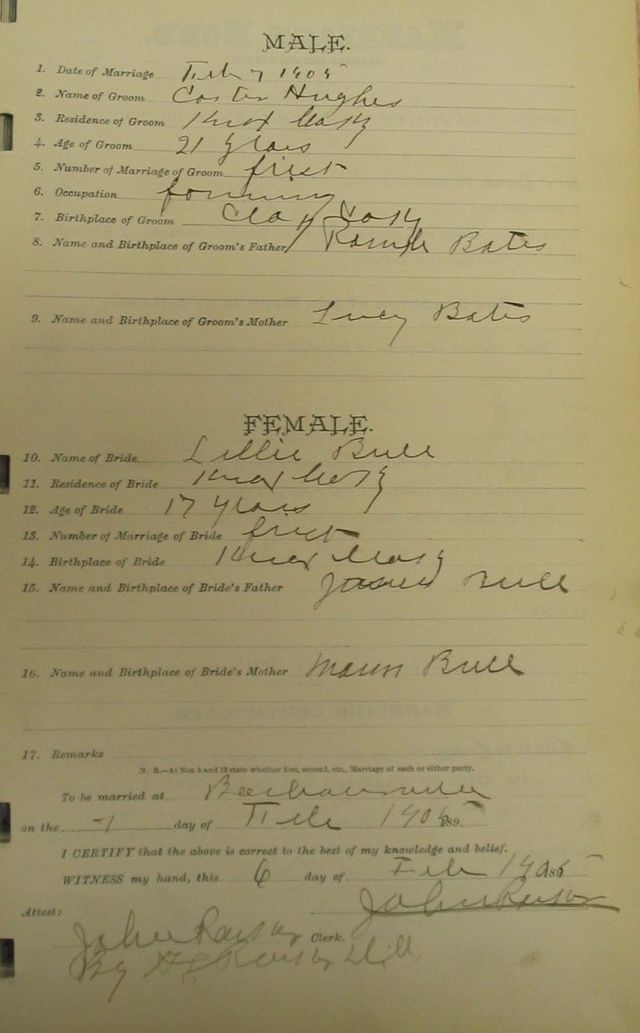 MALE.
1. Date of Marriage Feb 7 1905
2. Name of Groom Coster Hughes
3. Residence of Groom Knox Co Ky
4. Age of Groom 21 years
5. Number of Marriage of Groom first
6. Occupation farming
7. Birthplace of Groom Clay Co Ky
8. Name and Birthplace of Groom's Father Bates
9. Name and Birthplace of Groom's Mother Lucy Bates
FEMALE.
10. Name of Bride Lillie Bull
11. Residence of Bride Knox Co Ky
12. Age of Bride 17 years
13. Number of Marriage of Bride first
14. Birthplace of Bride Knox Co Ky
15. Name and Birthplace of Bride's Father Bull
16. Name and Birthplace of Bride's Mother Bull
17. Remarks
N. B.—At Nos 5 and 13 state whether first, second, etc., Marriage of each or either party.
To be married at
on the 7 day of Feb 1905
I CERTIFY that the above is correct to the best of my knowledge and belief.
WITNESS my hand, this 6 day of Feb 1905
John
Attest:
John Clerk.
By